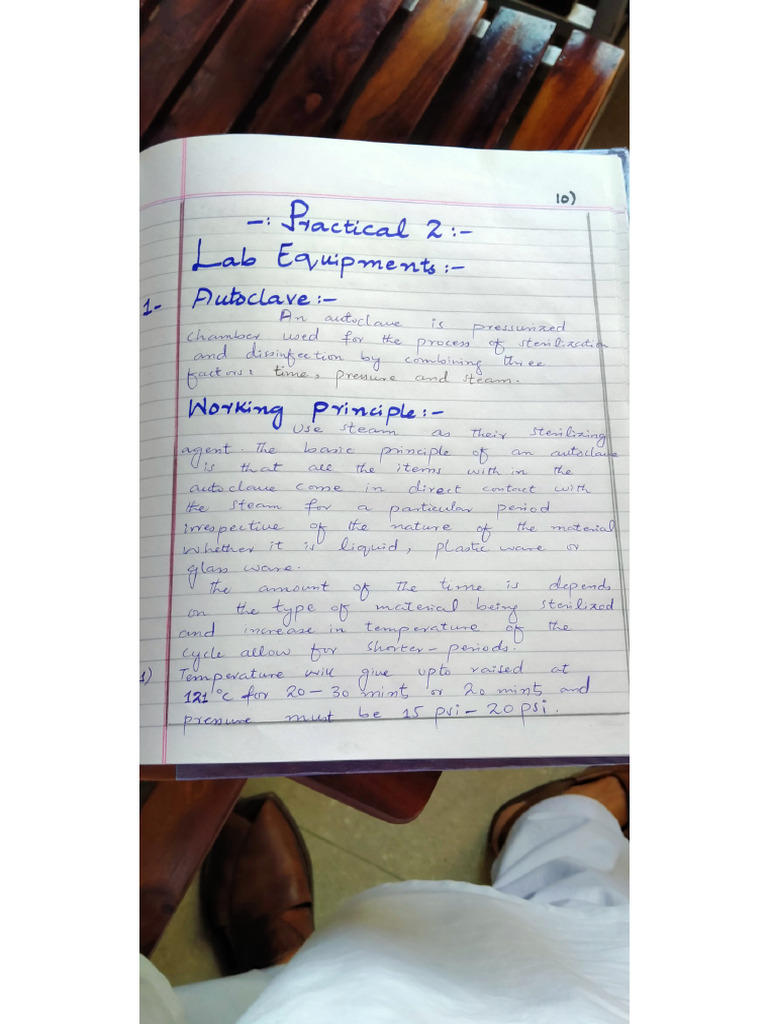 10)
-: Practical 2:-
Lab Equipments:-
1- Autoclave:-
An autoclave is pressurized
chamber used for the process of sterilization
and dissinfection by combining three
factors: time, pressure and steam.
Working Principle:-
Use steam as their sterilizing
agent. The basic principle of an autoclave
is that all the items with in the
autoclave come in direct contact with
the steam for a particular period
irrespective of the nature of the material
whether it is liquid, plastic ware or
glass ware.
The amount of the time is depends
on the type of material being sterilized
and increase in temperature of the
cycle allow for shorter-periods.
1) Temperature will give upto raised at
121°c for 20-30 mints or 20 mints and
pressure must be 15 psi - 20 psi.